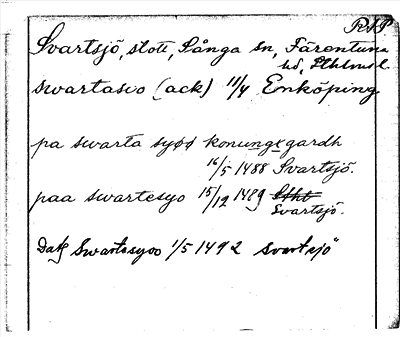 RAP
Svartsjö, slott, Sånga sn, Färentuna
hd, Sthlms l.
swartasio (ack) 11/4 Enköping
pa swarta syøø konungxgardh
16/5 1488 Svartsjö.
paa swartesyo 15/12 1489 Sthlm
Svartsjö.
Dat Swartesyoo 1/5 1492 svartsjö"